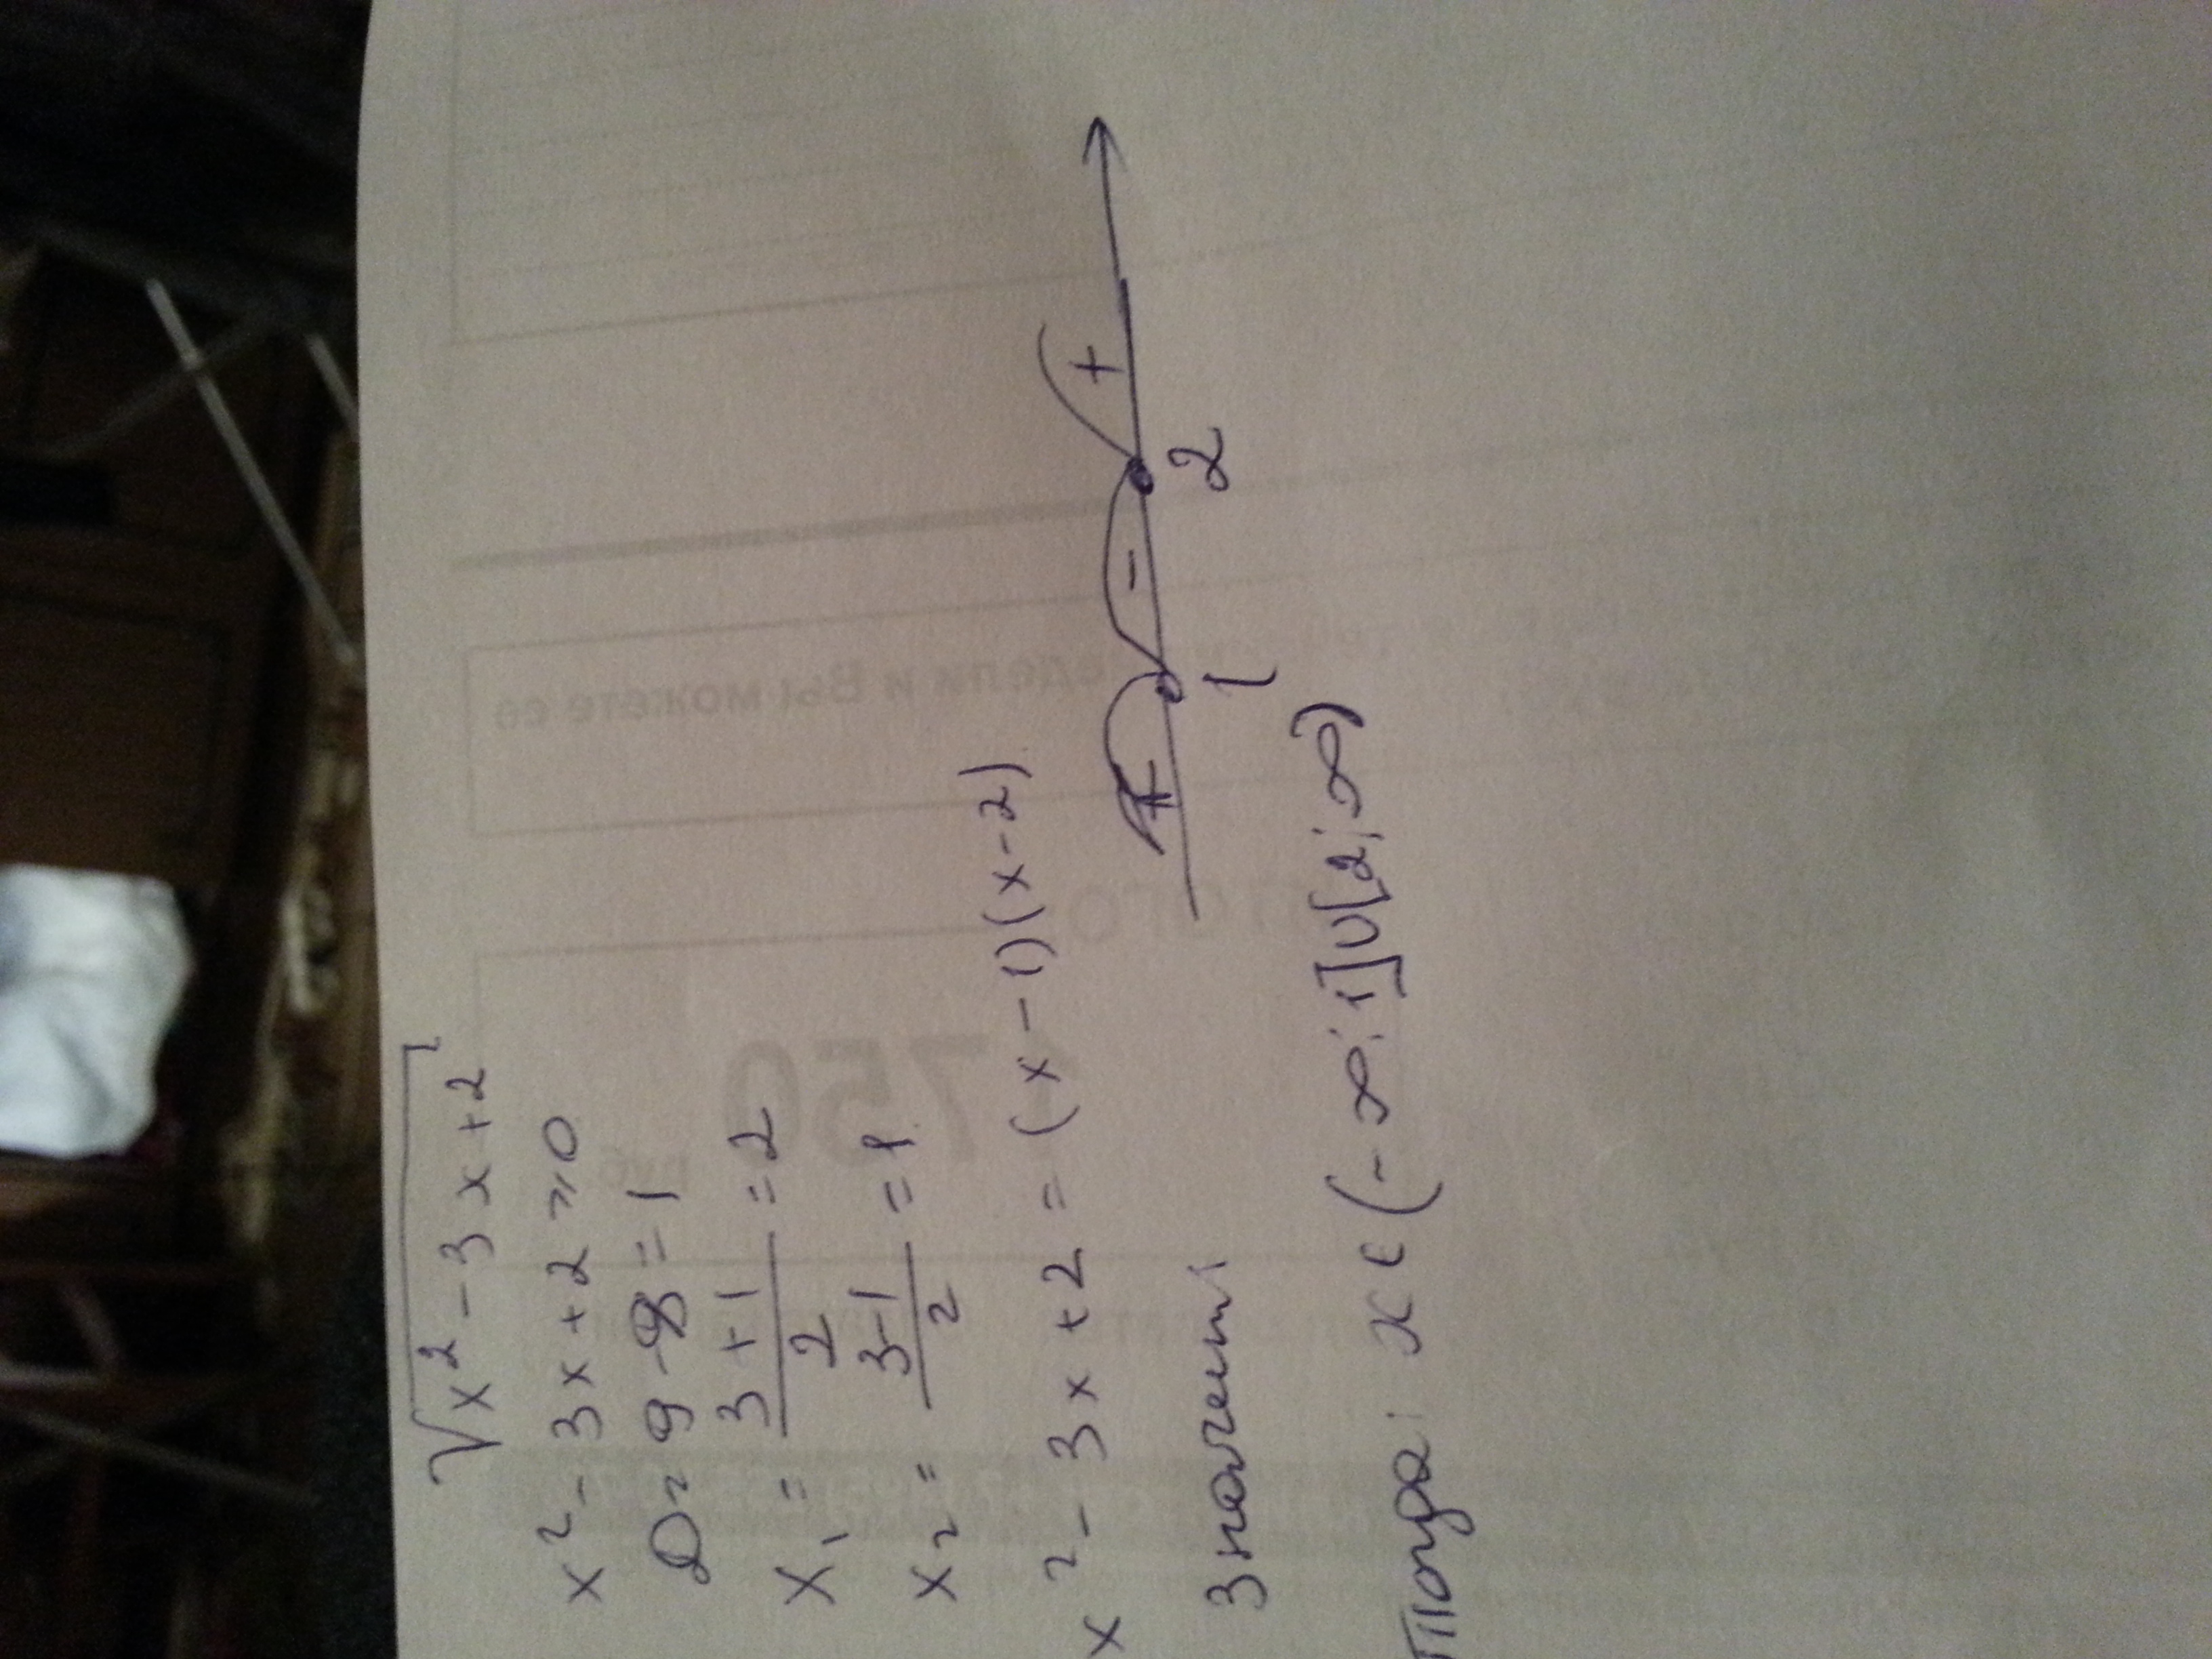 √x² - 3x + 2
x² - 3x + 2 ≥ 0
D = 9 - 8 = 1
x₁ = (3 + 1)/2 = 2
x₂ = (3 - 1)/2 = 1
x² - 3x + 2 = (x - 1)(x - 2)
+ - +
1 2
Тогда: x ∈ (-∞; 1] ∪ [2; ∞)
едели и Вы можете се
1750 руб